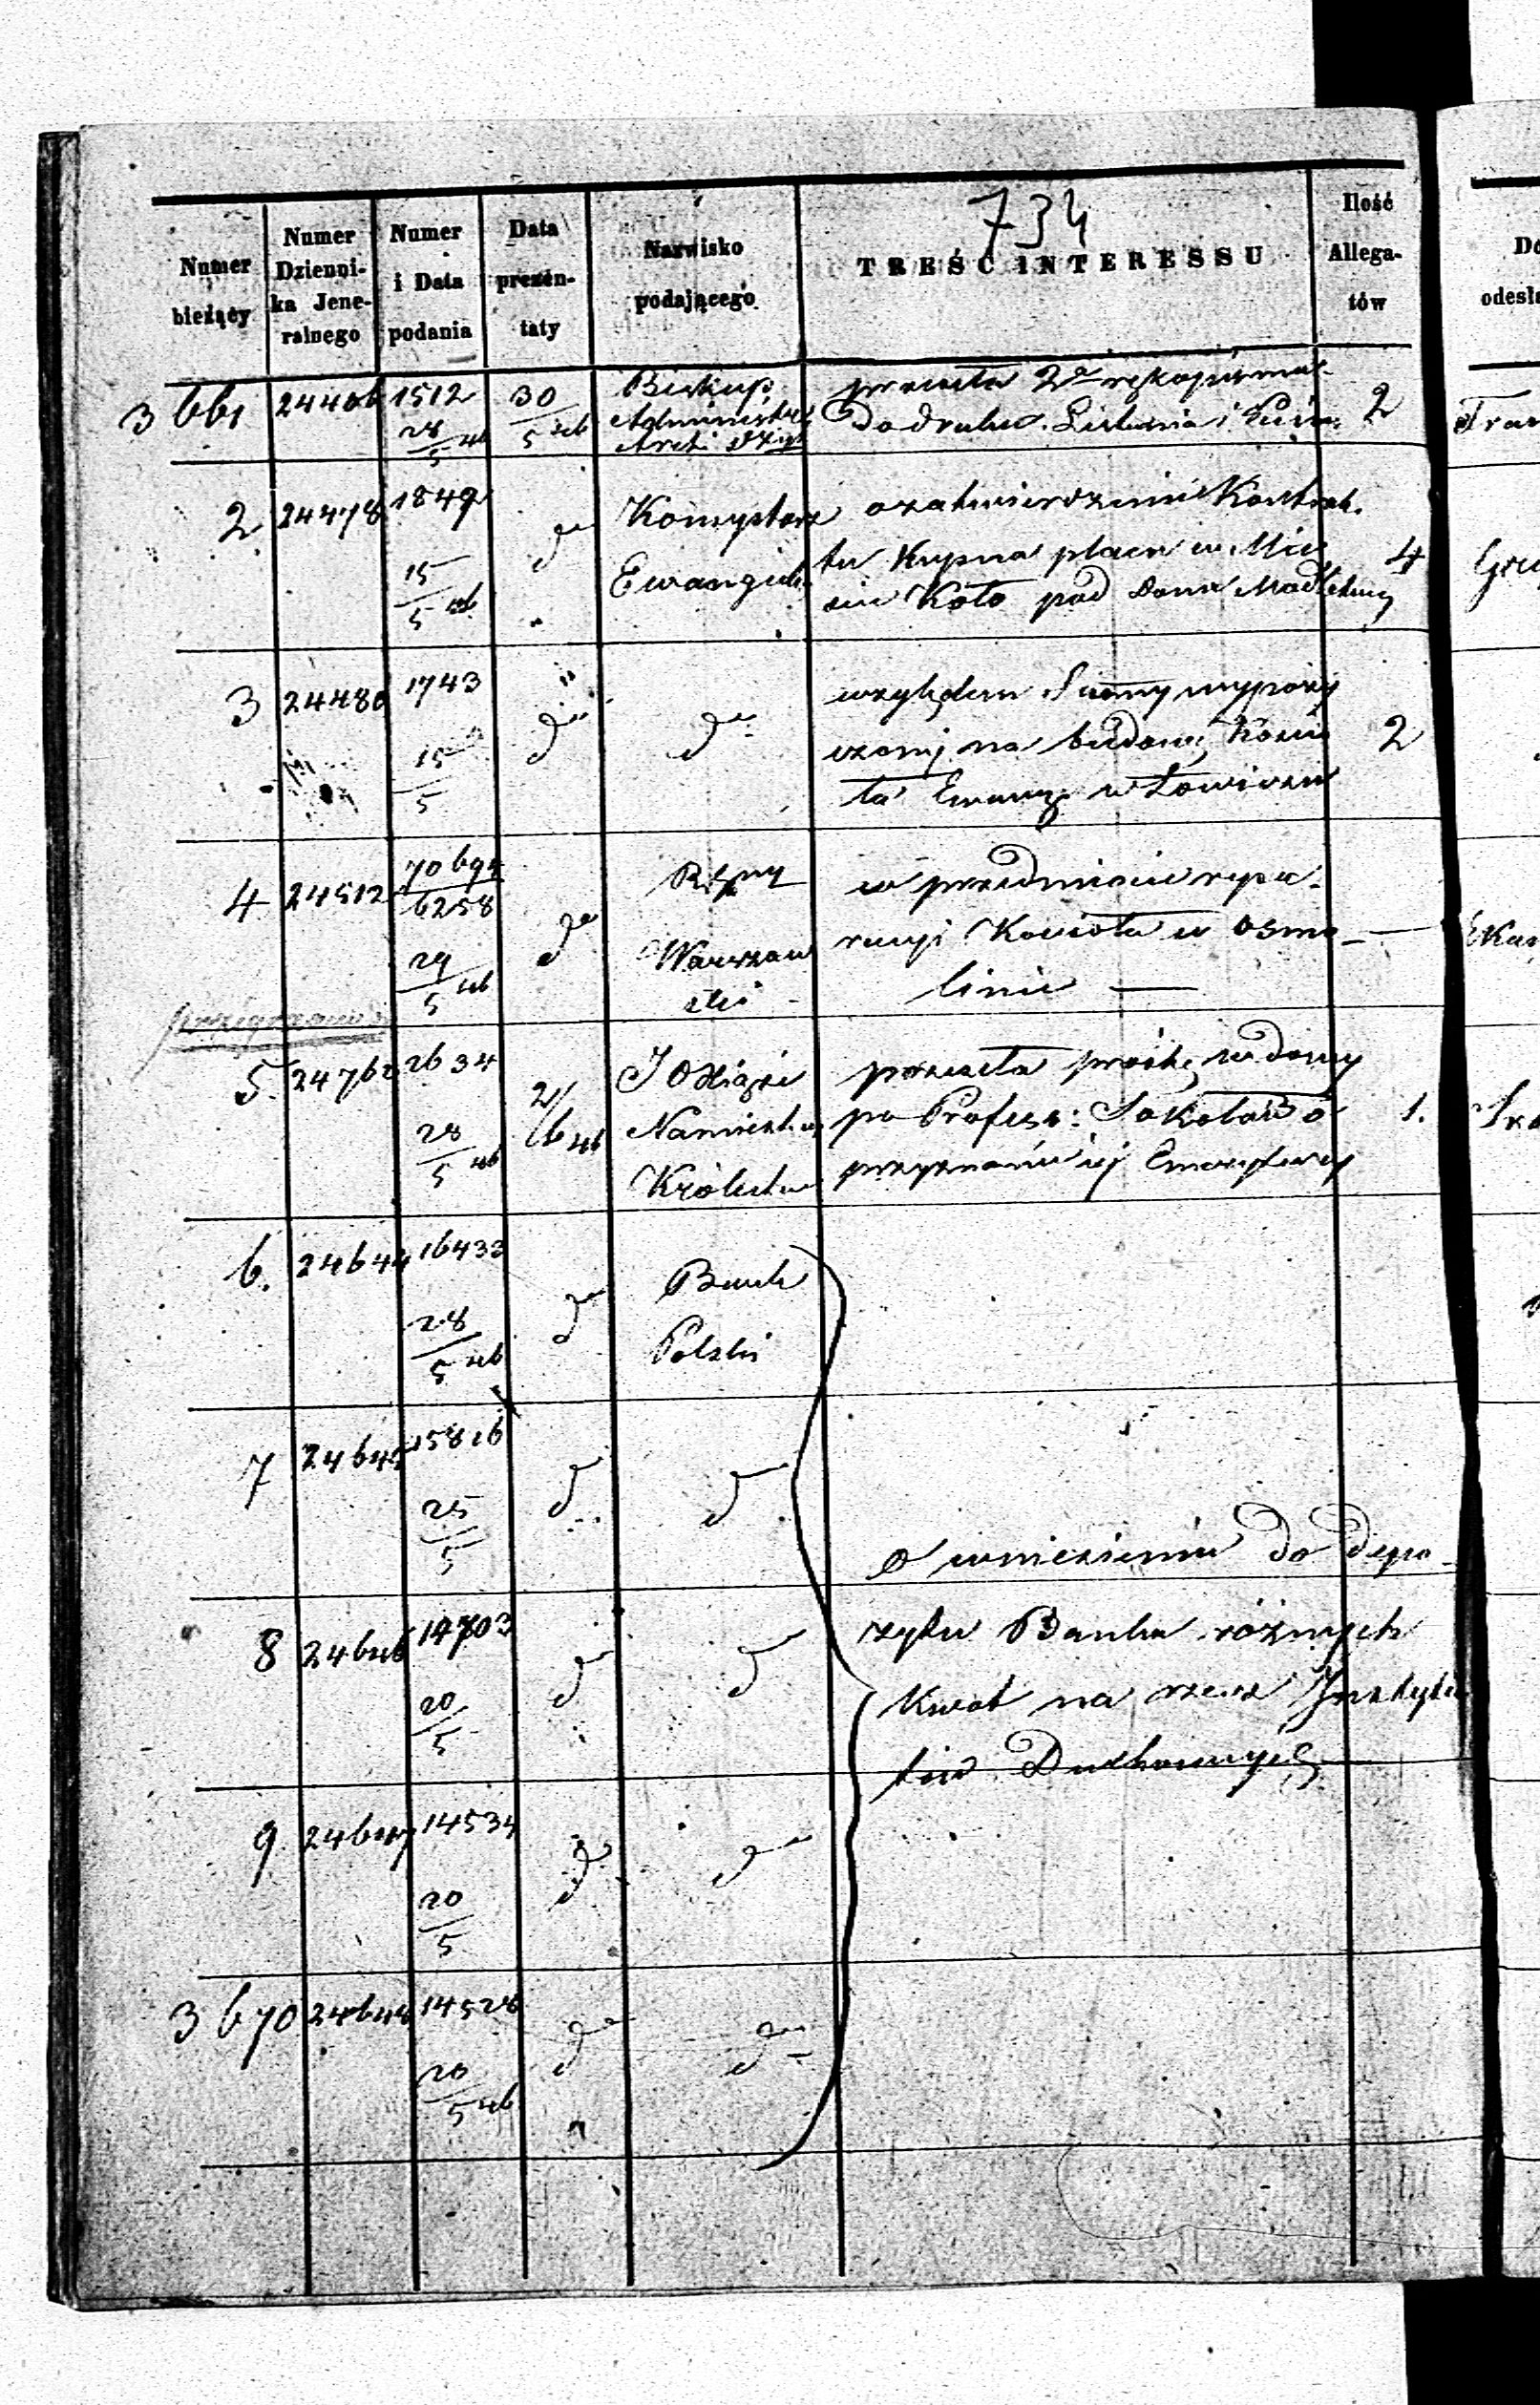 734
Numer bieżący | Numer Dzienni-ka Jene-ralnego | Numer i Data podania | Data prezen-taty | Nazwisko podającego | TREŚĆ INTERESSU | Ilość Allega-tów
3661 | 24406 | 1512 28/5 46 | 30/5 46 | Biskup Administr Archi | przesyła 2a rękopisma do druku 2
2 | 24478 | 1849 15/5 46 | do | Konsystorz Ewangiel | o zatwierdzenie Kontrak-
tu Kupna placu w Mie 4
ście Koło pod Dom Modlitwy
3 | 24480 | 1743 15/5 | do | do | względem Summy wypoży
czonej na budowę Kości 2
ła Ewang w Łowiczu
4 | 24512 | 70694/6258 29/5 46 | do | Rząd Warszaw ski | w przedmiocie repa-
racyi Kościoła w Osmo- —
linie —
5. | 2476 | 2634 28/5 46 | 2/6 46 | JO Xiąże Namiestnik Królestwa | przesyła prośbę wdowy
po Profess: 1.
przyznanie jej Emerytury
6. | 24644 | 16433 28/5 46 | do | Bank Polski
7 | 24645 | 15816 25/5 | do | do
o wniesieniu do depo-
8 | 24646 | 14703 20/5 | do | do | zytu Banku różnych
Kwot na rzecz Instytu
tów Duchownych
9 | 24647 | 14534 20/5 | do | do
3670 | 24648 | 14528 20/5 46 | do | do